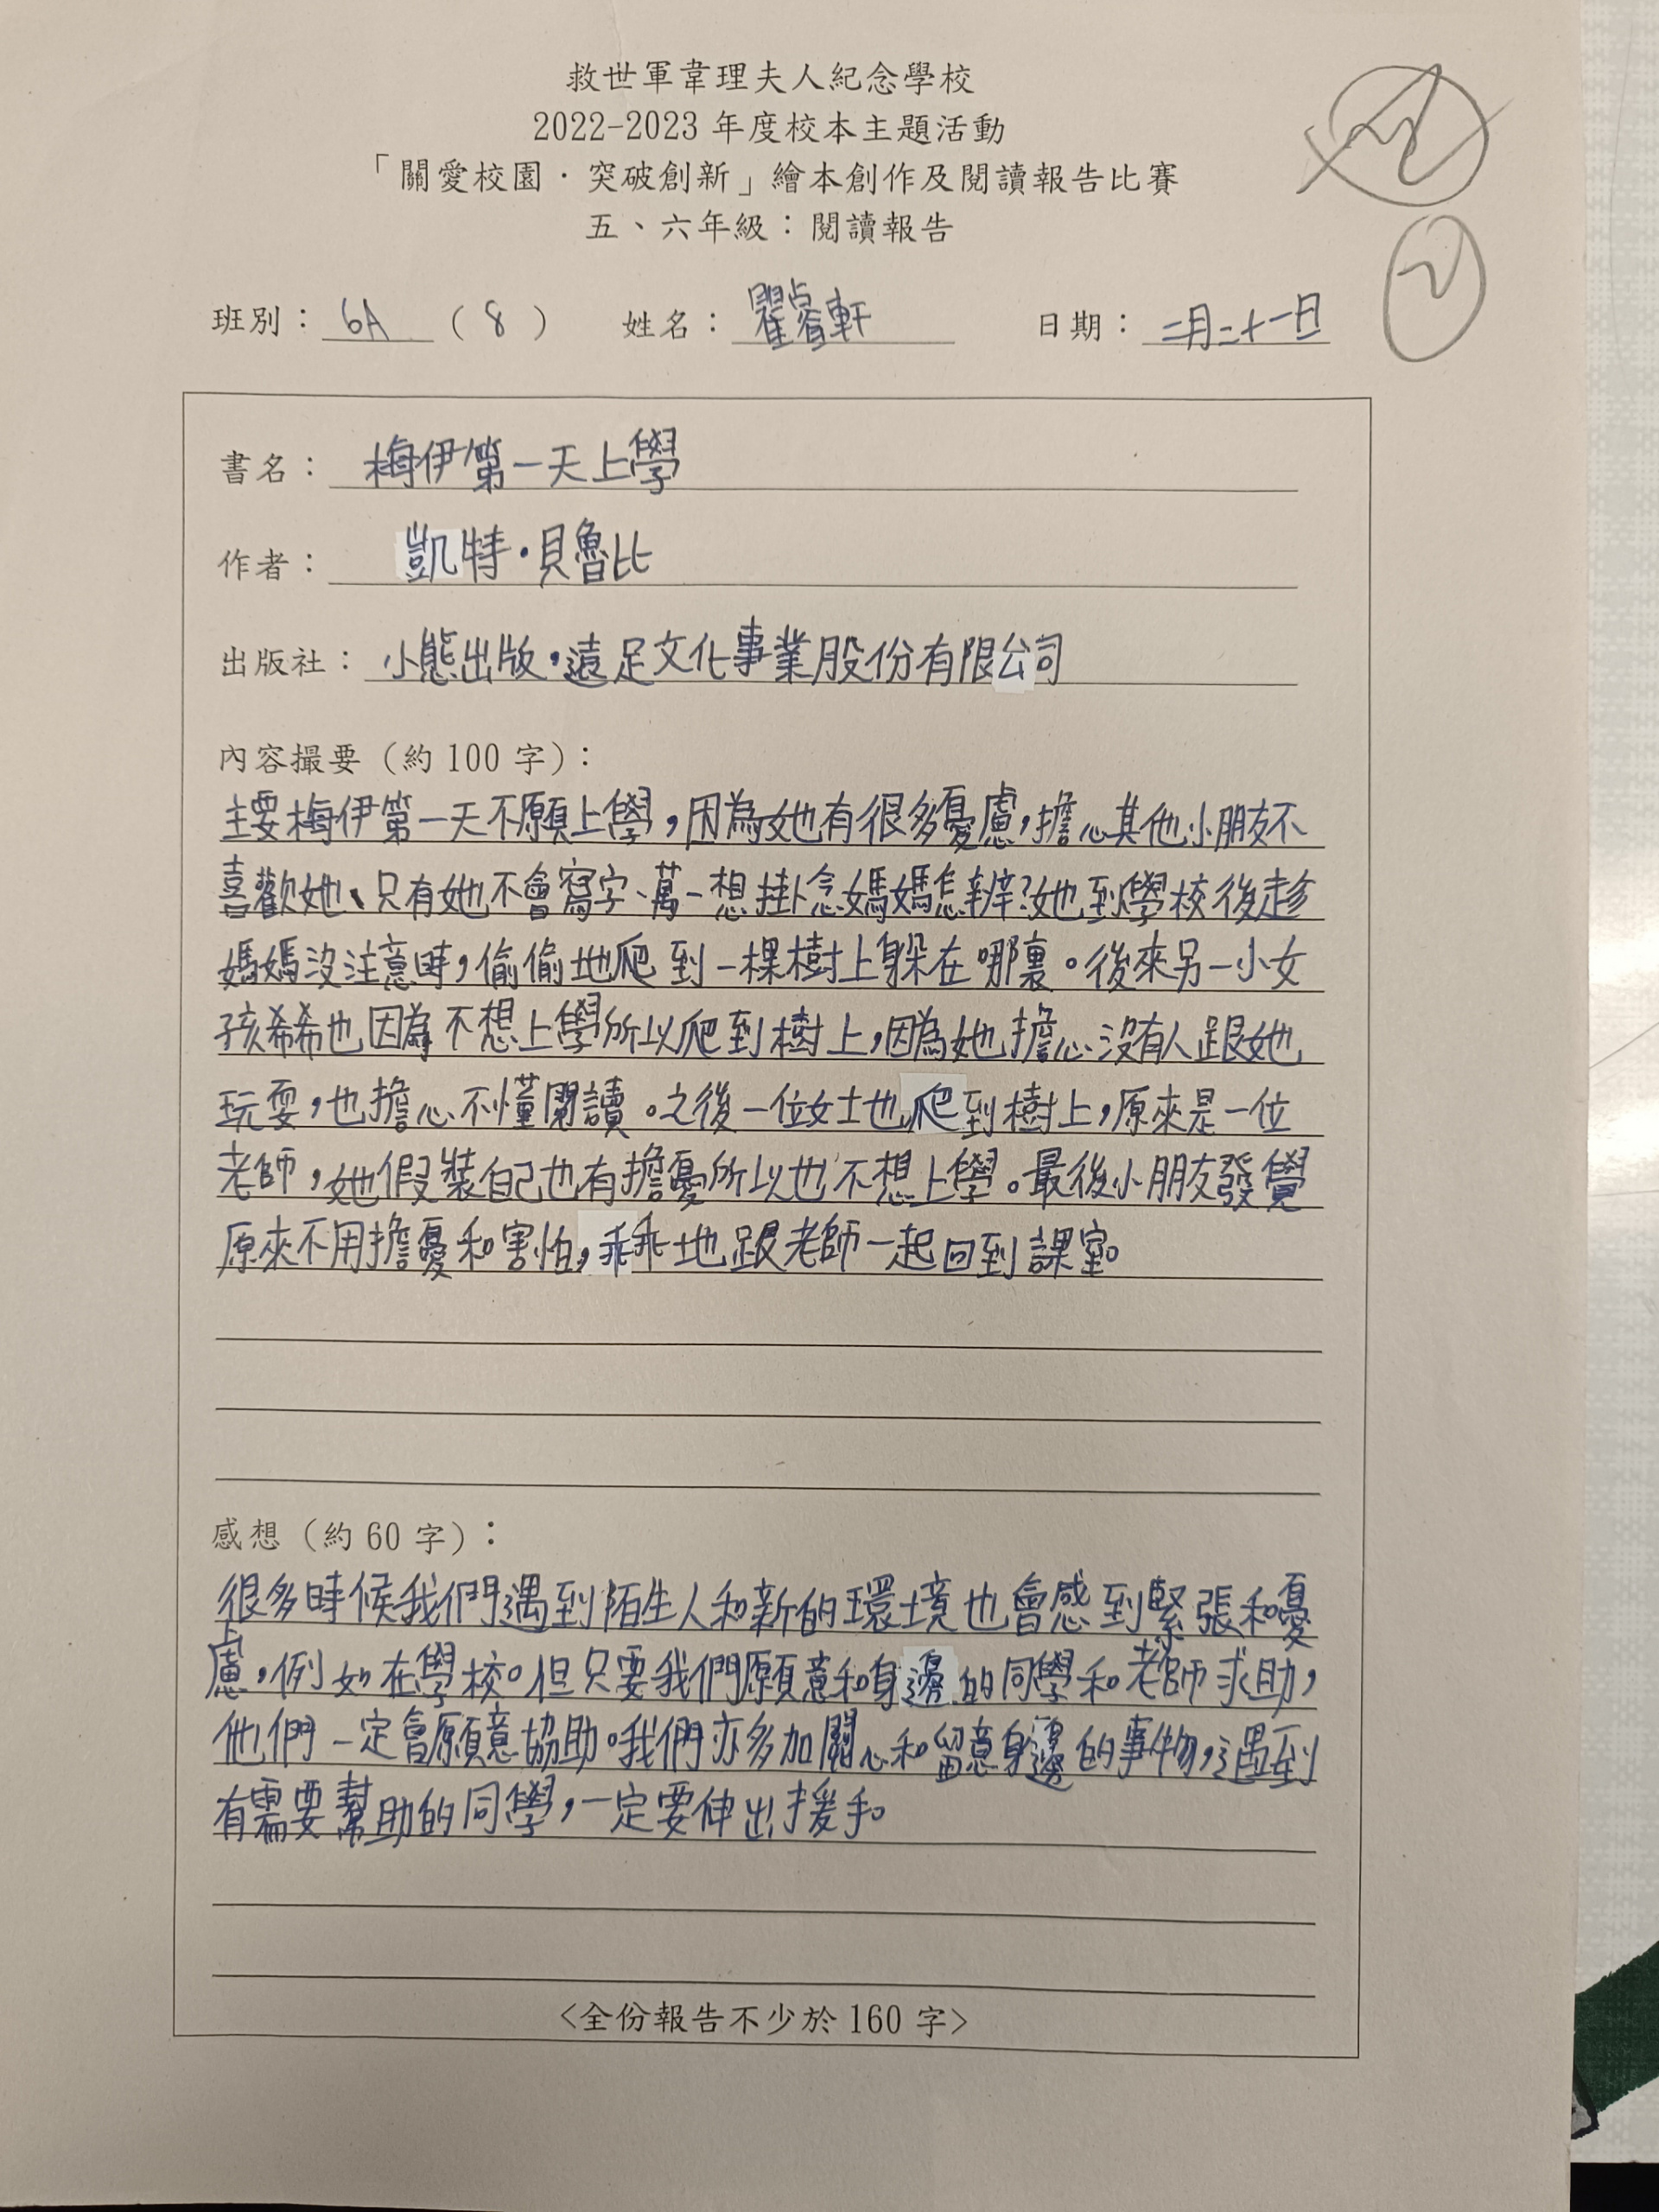 救世軍韋理夫人紀念學校
2022-2023 年度校本主題活動
「關愛校園．突破創新」繪本創作及閱讀報告比賽
五、六年級：閱讀報告
班別： 6A （ 8 ） 姓名： 瞿睿軒 日期： 二月二十一日
書名： 梅伊第一天上學
作者： 凱特·貝魯比
出版社： 小熊出版，遠足文化事業股份有限公司
內容撮要（約 100 字）：
主要梅伊第一天不願上學，因為她有很多憂慮，擔心其他小朋友不
喜歡她、只有她不會寫字、萬一想掛念媽媽怎辦？她到學校後趁
媽媽沒注意時，偷偷地爬到一棵樹上躲在哪裏。後來另一小女
孩希希也因為不想上學所以爬到樹上，因為她擔心沒有人跟她
玩耍，也擔心不懂閱讀。之後一位女士也爬到樹上，原來是一位
老師，她假裝自己也有擔憂所以也不想上學。最後小朋友發覺
原來不用擔憂和害怕，乖乖地跟老師一起回到課室。
感想（約 60 字）：
很多時候我們遇到陌生人和新的環境也會感到緊張和憂
慮，例如在學校。但只要我們願意和身邊的同學和老師求助，
他們一定會願意協助。我們亦多加關心和留意身邊的事物，遇到
有需要幫助的同學，一定要伸出援手。
<全份報告不少於 160 字>